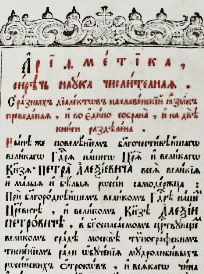 АРІѲМЕТІКА,
сирѣчь наука числителная.
С разныхъ діалектовъ на славенскій ѧзыкъ
преведеная, и во едино собрана, и на двѣ
книги раздѣлена.
повелѣнїемъ благочестивѣйшагѡ
великагѡ Гдⷭ҇рѧ нашегѡ Црѧ̀ и великагѡ
Кнѧзѧ ПЕТРА АЛЕѮІЕВИЧА всеѧ великїѧ
и малыѧ и бѣлыѧ рѡссїи самодержца:
При благороднѣйшемъ великомъ Гдⷭ҇рѣ нашемъ
Црⷭ҇вичѣ, и великомъ Кнѧзѣ АЛЕѮІИ
ПЕТРОВИЧѢ, в богоспасаемомъ црⷭ҇твующемъ
великомъ градѣ москвѣ типографскимъ
тисненїемъ ради ѡбученїѧ мудролюбивыхъ
рѡссїйскихъ ѻтрокѡвъ, и всѧкагѡ чина